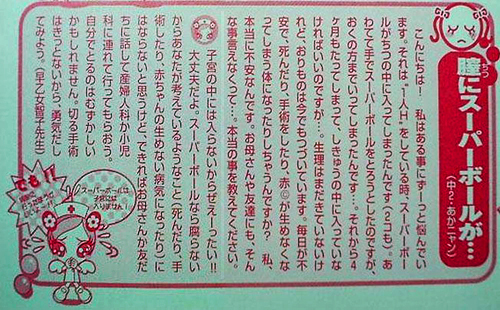 膣にスーパーボールが…
ちつ
(中?・あかニャン)
こんにちは。私はある事にずーっと悩んでい
ます。それは“1人H”をしている時、スーパーボー
ルがちつの中に入ってしまったんです(2コも)。あ
わてて手でスーパーボールをとろうとしたのですが、
おくの方までいってしまったんです…。それから4
ヶ月もたってしまって、しきゅうの中に入っていな
ければいいのですが…。生理はまだきていないけ
れど、おりものは今でもつづいています。毎日が不
安で、死んだり、手術をしたり、赤©が生めなくな
ってしまう体になったりしちゃうんですか?私、
本当に不安なんです。お母さんや友達にも、そん
な事言えなくって…。本当の事を教えてください。
子宮の中には入らないからぜえーったい!!
大丈夫だよ。スーパーボールなら腐らない
からあなたが考えているようなこと(死んだり、手
術したり、赤ちゃんの生めない病気になったり)に
はならないと思うけど、できればお母さんか友だ
ちに話して産婦人科か小児
科に連れて行ってもらおう。
自分でとるのはむずかしい
かもしれません。切る手術
はきっとないから、勇気だし
てみよう。(早乙女智子先生)
スーパーボールは
子宮には
入りません!
でも!!